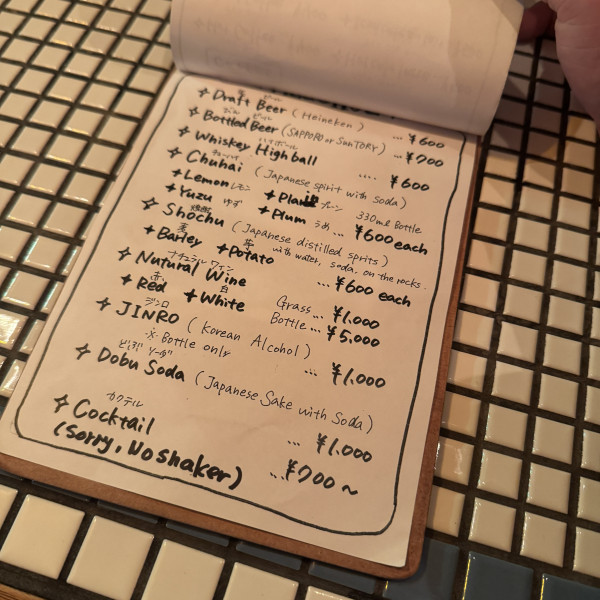 ✧ Draft Beer (Heineken) ... ¥600
✧ Bottled Beer (SAPPORO or SUNTORY) ... ¥700
ハイボール
✧ Whiskey Highball .... ¥600
チューハイ
✧ Chuhai (Japanese spirit with soda)
✦ Lemon レモン ✦ Plain プレーン 330ml Bottle
✦ Yuzu ゆず ✦ Plum うめ ... ¥600 each
焼酎
✧ Shochu (Japanese distilled sprits)
麦 芋 with water, soda, on the rocks.
✦ Barley ✦ Potato ... ¥600 each
ナチュラルワイン
✧ Natural Wine
赤 白
✦ Red ✦ White Grass... ¥1,000
Bottle... ¥5,000
ジンロ
✧ JINRO (Korean Alcohol)
※ Bottle only ... ¥1,000
どぶ ソーダ
✧ Dobu Soda (Japanese Sake with Soda)
... ¥1,000
カクテル
✧ Cocktail
(Sorry, No shaker) ... ¥700~